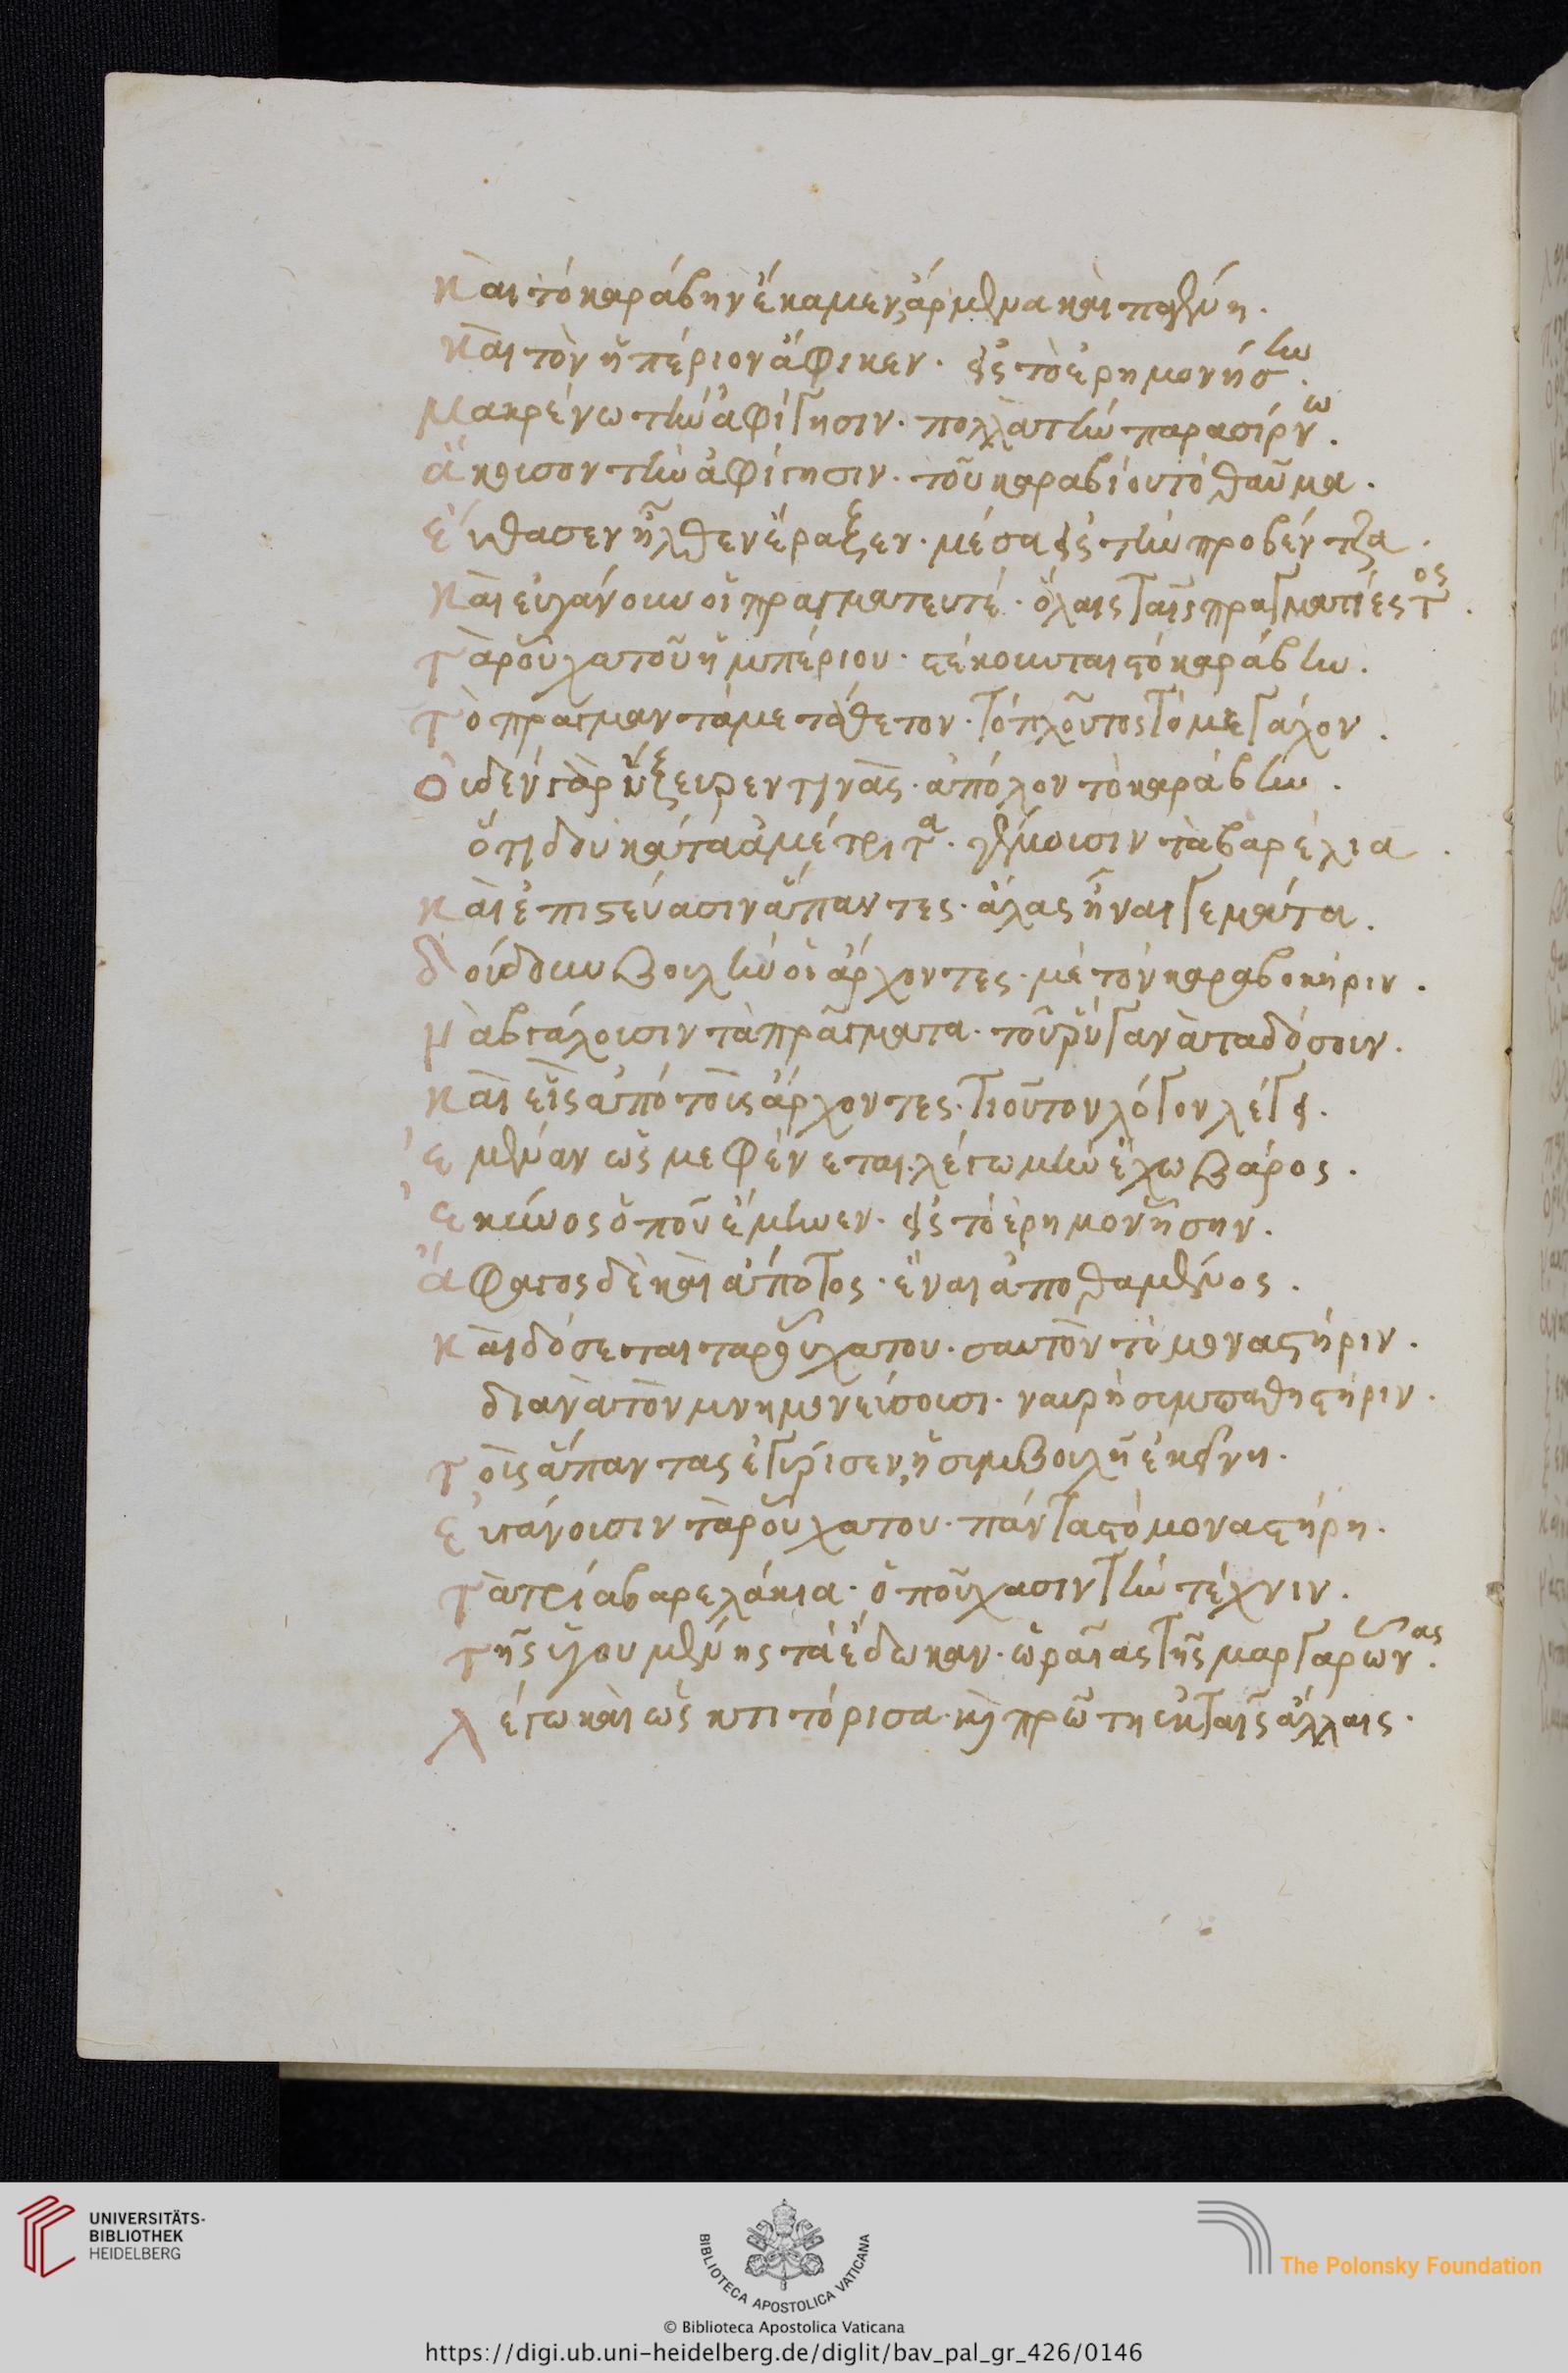 και τὸ καράβην ἔκαμεν, ἄρμενα και πανένη.
και τὸν ἠπέριον ἄφικεν. εἰς τὸ ἐρημονήσιν.
μακρένω την ἀφίγησιν. πολλὰ την παρασίρνω.
ἄκουσον την ἀφίγησιν. τοῦ καραβίου τὸ θαῦμα.
ἔφθασεν ἦλθεν ἔραξεν. μέσα εἰς την προβέντζα.
και εὐγάνουν οἱ πραγματευτέ. ὅλαις ταῖς πραγματίες τος.
τὰ ροῦχα τοῦ ἠμπέριου. στέκουνται στὸ καράβην.
τὸ πράγμαν τὰ μετάθετον. τὸ πλοῦτος τὸ μεγάλον.
οὐδὲν γὰρ ἤξευρεν τινὰς. ἀπόλον τὸ καράβην.
ὅτι δουκάτα ἀμέτριτα. γέμοισιν τὰ βαρέλια.
και ἐπιστεύασιν ἅπαντες. ἅλας ἦναι γεμάτα.
δοίδουν βουλην οἱ ἄρχοντες. μὲ τὸν καραβοκήριν.
νὰ βγάλοισιν τὰ πράγματα. τοῦ ρύγα νὰ τα δόσουν.
και εἷς ἀπὸ τοὺς ἄρχοντες. τιοῦτον λόγον λέγει.
ἐμέναν ὡς με φένεται. λέγω μην ἔχω βάρος.
ἐκεῖνος ὁποῦ ἔμηνεν. εἰς τὸ ἐρημονῆσην.
ἄφαγος δὲ και ἄποτος. ἔναι ἀποθαμένος.
και δόσεται τα ροῦχα του. σαυτὸν τὸ μοναστήριν.
διὰ νὰ τὸν μνημονεύσουσι. ναυρὴ σιμπαθηστήριν.
τοὺς ἅπαντας ἐγύρισεν, ἡ σιμβουλὴ ἐκείνη.
εὐγάνοισιν τὰ ροῦχα του. πάντα στὸ μοναστήρη.
τὰ τρία βαρελάκια. ὁποῦχασιν την τέχνιν.
τῆς ἡγουμένης τὰ ἔδωκαν. ὡραίας τῆς μαργαρώνας.
λέγω και ὡς κτιτόρισα. κὶ πρώτη ἐκ ταῖς ἄλλαις.
UNIVERSITÄTS-
BIBLIOTHEK
HEIDELBERG
BIBLIOTECA APOSTOLICA VATICANA
The Polonsky Foundation
© Biblioteca Apostolica Vaticana
https://digi.ub.uni-heidelberg.de/diglit/bav_pal_gr_426/0146